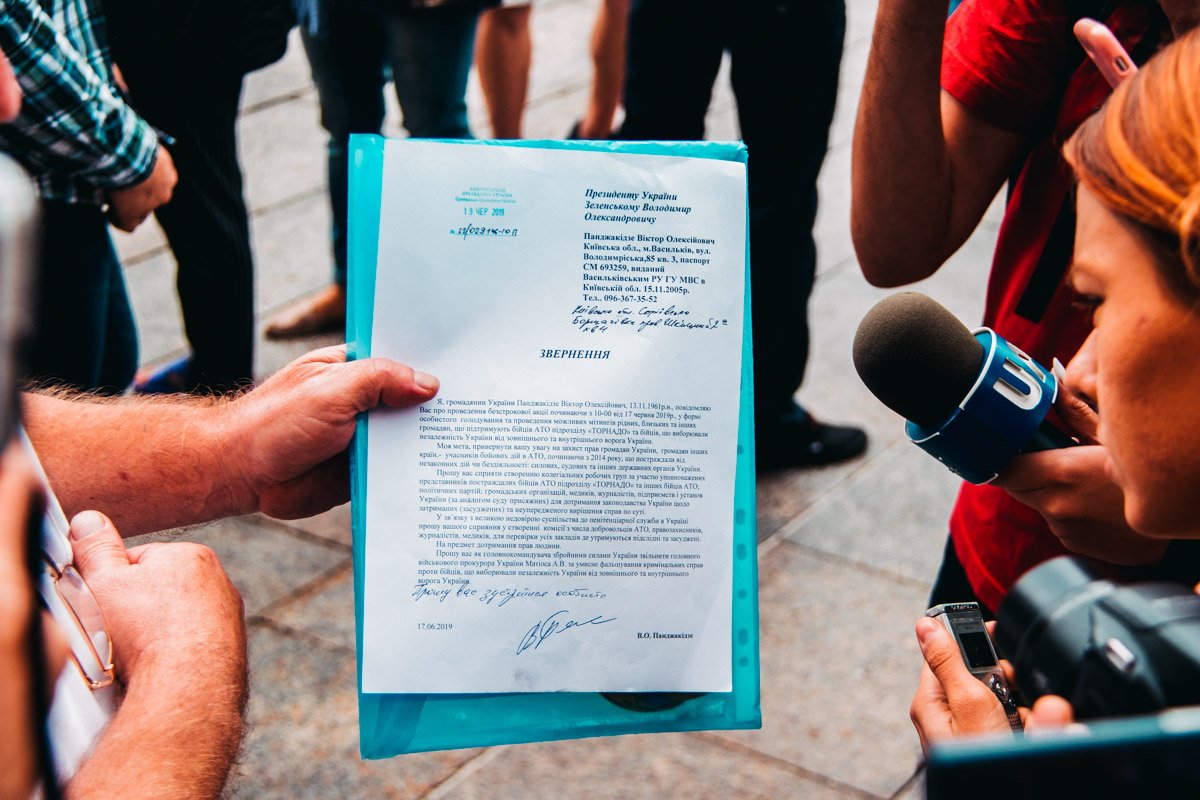 19 ЧЕР 2019
Президенту України
Зеленському Володимир
Олександровичу
Панджакідзе Віктор Олексійович
Київська обл., м.Васильків, вул.
Володимирська,85 кв. 3, паспорт
СМ 693259, виданий
Васильківським РУ ГУ МВС в
Київській обл. 15.11.2005р.
Тел.. 096-367-35-52
Київська обл. Софіївська
ЗВЕРНЕННЯ
Я, громадянин України Панджакідзе Віктор Олексійович, 13.11.1961р.н., повідомляю
Вас про проведення безстрокової акції починаючи з 10-00 від 17 червня 2019р., у формі
особистого голодування та проведення можливих мітингів рідних, близьких та інших
громадян, що підтримують бійців АТО підрозділу «ТОРНАДО» та бійців, що вибороли
незалежність України від зовнішнього та внутрішнього ворога України.
Моя мета, привернути вашу увагу на захист прав громадян України, громадян інших
країн,- учасників бойових дій в АТО, починаючи з 2014 року, що постраждали від
незаконних дій чи бездіяльності: силових, судових та інших державних органів України.
Прошу вас сприяти створенню колегіальних робочих груп за участю уповноважених
представників постраждалих бійців АТО підрозділу «ТОРНАДО» та інших бійців АТО;
політичних партій; громадських організацій, медиків, журналістів, підприємств і установ
України (за аналогом суду присяжних) для дотримання законодавства України щодо
затриманих (засуджених) та неупередженого вирішення справ по суті.
У зв'язку з великою недовірою суспільства до пенітенціарної служби в Україні
прошу вашого сприяння у створенні комісії з числа добровольців АТО, правозахисників,
журналістів, медиків, для перевірки усіх закладів де утримуються підслідні та засуджені.
На предмет дотримання прав людини.
Прошу вас як головнокомандувача збройними силами України звільнити головного
військового прокурора України Матіоса А.В. за умисне фальшування кримінальних справ
проти бійців, що вибороли незалежність України від зовнішнього та внутрішнього
ворога України.
Прошу вас зустрітися особисто
17.06.2019
В.О. Панджакідзе